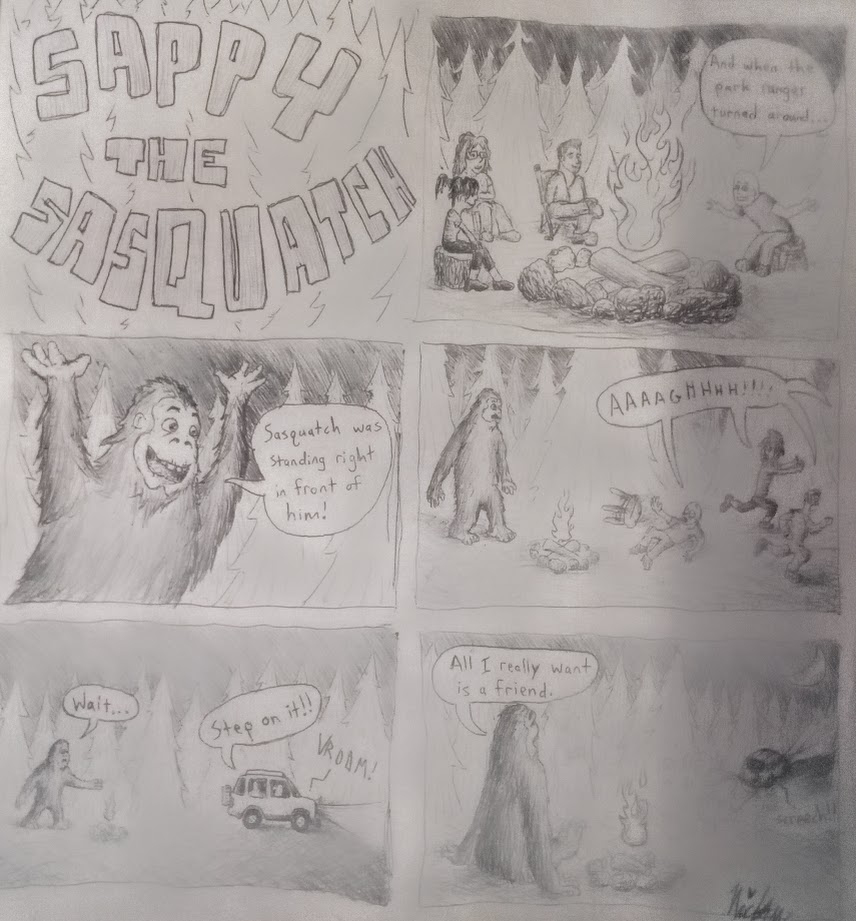 SAPPY
THE
SASQUATCH
And when the
park ranger
turned around...
Sasquatch was
standing right
in front of
him!
AAAAGHHHH!!!!
Wait...
Step on it!!
VROOM!
All I really want
is a friend.
screech!!